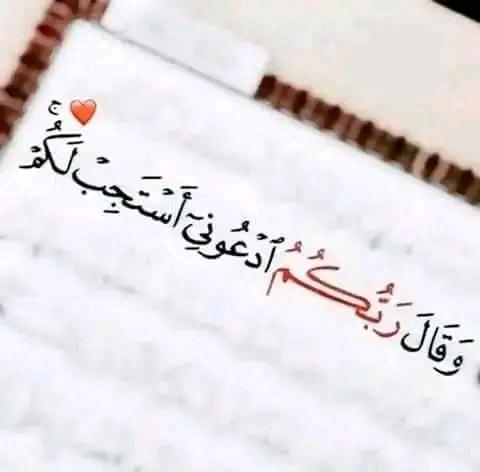 وَقَالَ رَبُّكُمُ ٱدْعُونِيٓ أَسْتَجِبْ لَكُمْۚ ❤️